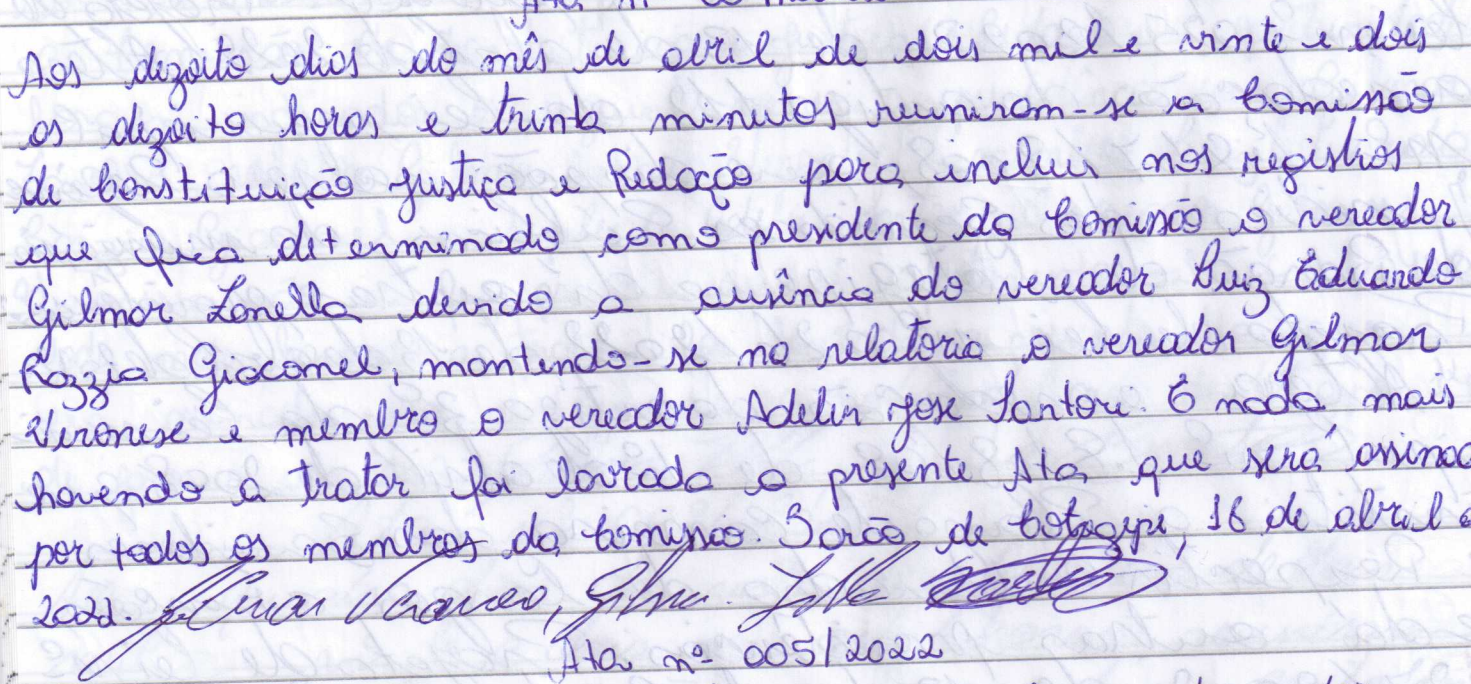 Aos dezoito dias do mês de abril de dois mil e vinte e dois
as dezoito horas e trinta minutos reuniram-se a Comissão
de Constituição Justiça e Redação para incluir nos registros
que fica determinado como presidente da Comissão o vereador
Gilmar Zanella devido a ausência do vereador Luiz Eduardo
Razzia Giacomel, mantendo-se na relatoria o vereador Gilmar
Veronese e membro o vereador Adelir Jose Santori. E nada mais
havendo a tratar foi lavrada a presente Ata que será assinad
por todos os membros da Comissão. Barão de Cotegipe, 18 de abril
2022.
Ata nº 005/2022